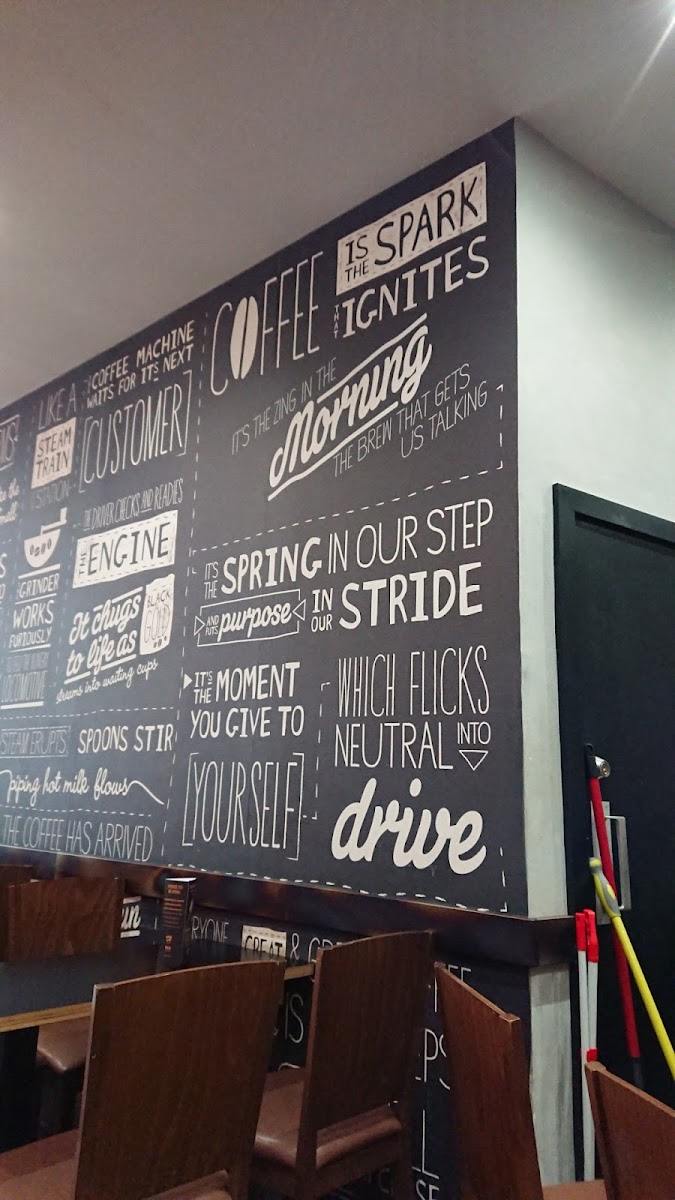 COFFEE
IS THE SPARK
THAT IGNITES
IT'S THE ZING IN THE
Morning
THE BREW THAT GETS
US TALKING
IT'S THE SPRING IN OUR STEP
AND PUTS purpose IN OUR STRIDE
IT'S THE MOMENT
YOU GIVE TO
YOURSELF
WHICH FLICKS
NEUTRAL INTO
drive
LIKE A
STEAM
TRAIN
STATION
COFFEE MACHINE
WAITS FOR IT'S NEXT
CUSTOMER
THE DRIVER CHECKS AND READIES
THE ENGINE
GRINDER
WORKS
FURIOUSLY
LOCOMOTIVE
It chugs
to life as
BLACK
GOLD
streams into waiting cups
STEAM ERUPTS SPOONS STIR
piping hot milk flows
THE COFFEE HAS ARRIVED
GREAT &